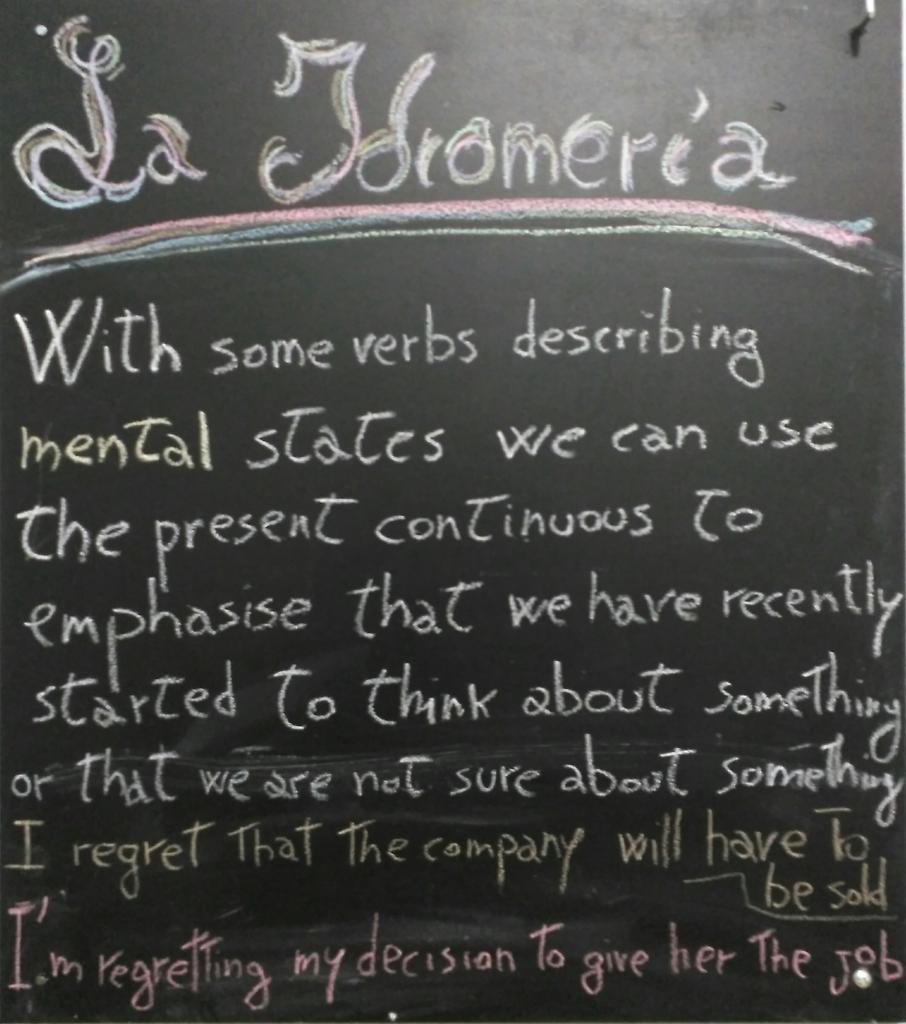 La Idromería
With some verbs describing
mental states we can use
the present continuous to
emphasise that we have recently
started to think about something
or that we are not sure about something
I regret that the company will have to
be sold
I'm regretting my decision to give her the job